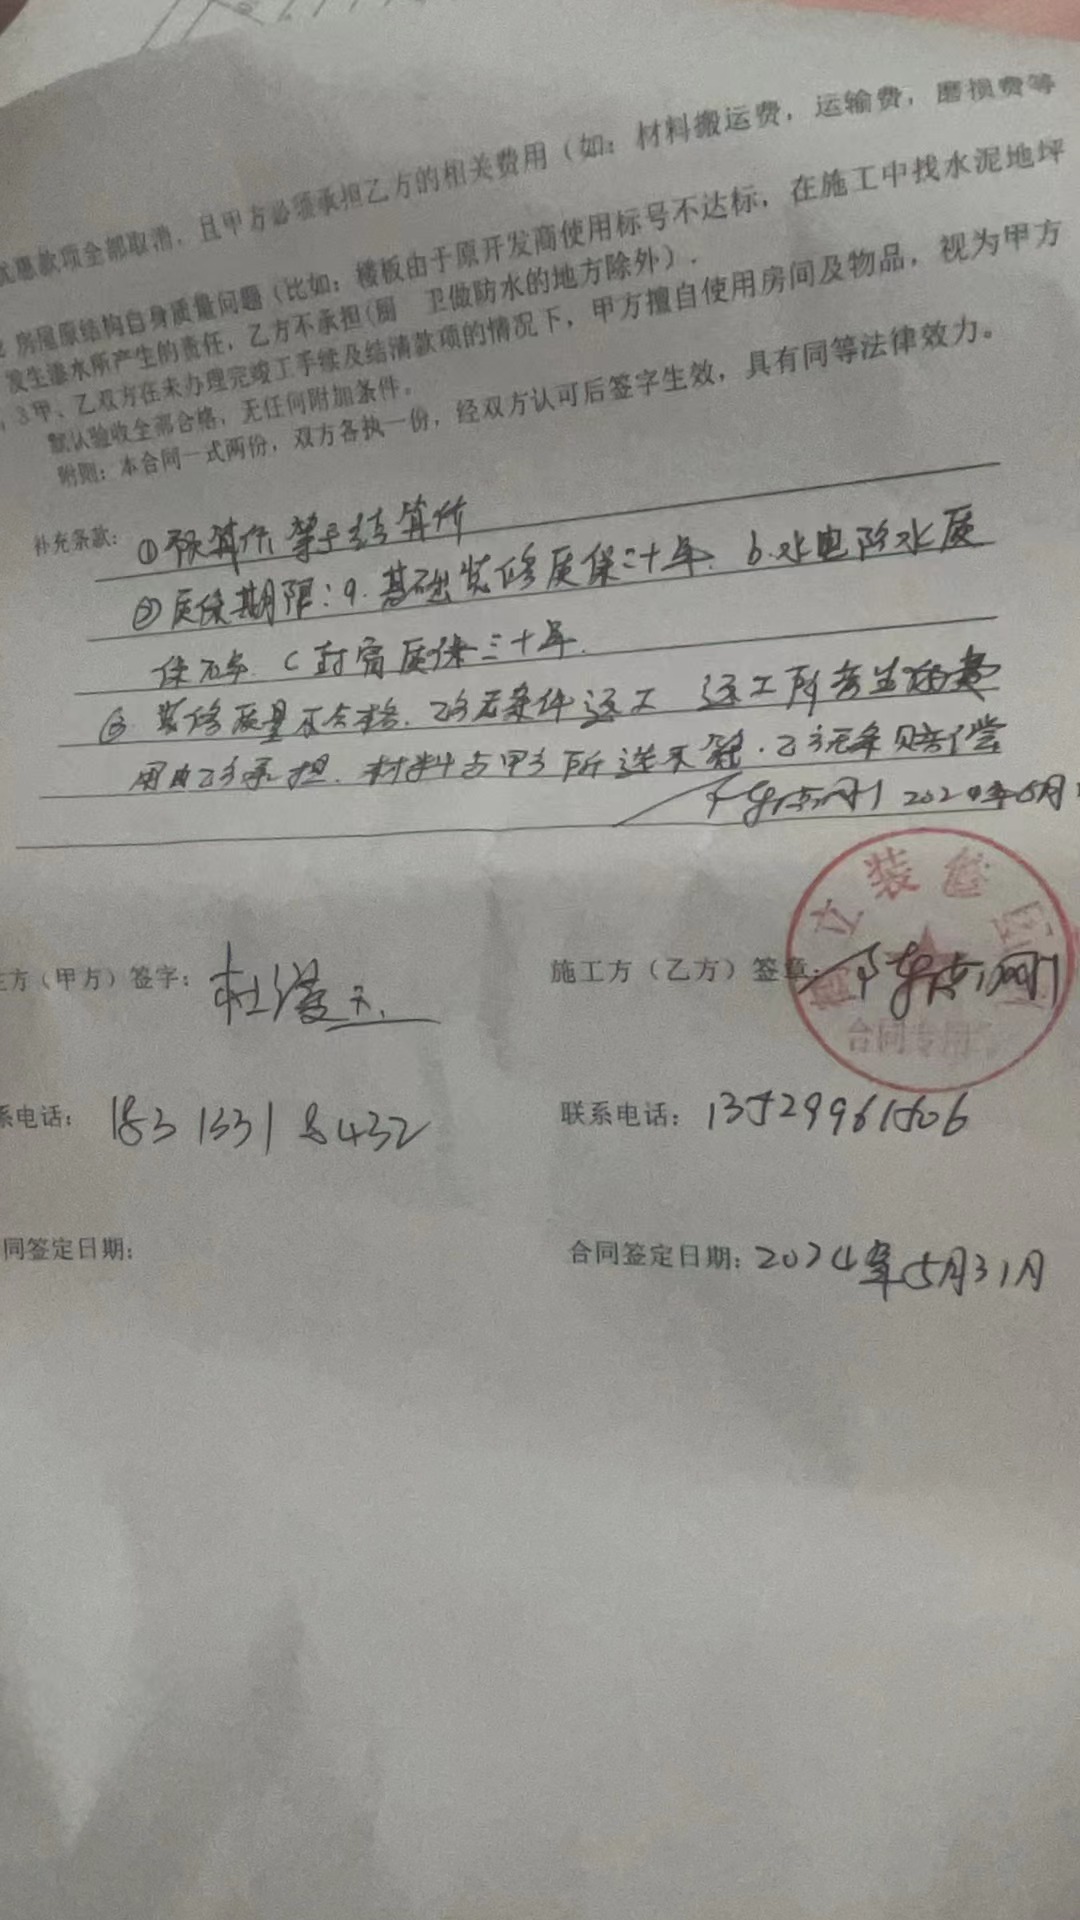 优惠款项全部取消，且甲方必须承担乙方的相关费用（如：材料搬运费，运输费，磨损费等
2 房屋原结构自身质量问题（比如：楼板由于原开发商使用标号不达标，在施工中找水泥地坪
发生渗水所产生的责任，乙方不承担（厨 卫做防水的地方除外）．
，3甲、乙双方在未办理完竣工手续及结清款项的情况下，甲方擅自使用房间及物品，视为甲方
默认验收全部合格，无任何附加条件．
附则：本合同一式两份，双方各执一份，经双方认可后签字生效，具有同等法律效力。
补充条款： ①预算价等于结算价
②质保期限：a. 基础装修质保二十年． b.水电防水质
保五年． C 封窗质保三十年．
③ 装修质量不合格．乙方无条件返工 返工所产生的费
用由乙方承担． 材料与甲方所选不符．乙方无条赔偿
2024年5月
主方（甲方）签字： 杜
施工方（乙方）签章：
立装
合同专用
系电话： 183 1331 8432
联系电话： 13529961506
同签定日期：
合同签定日期： 2024年5月31日